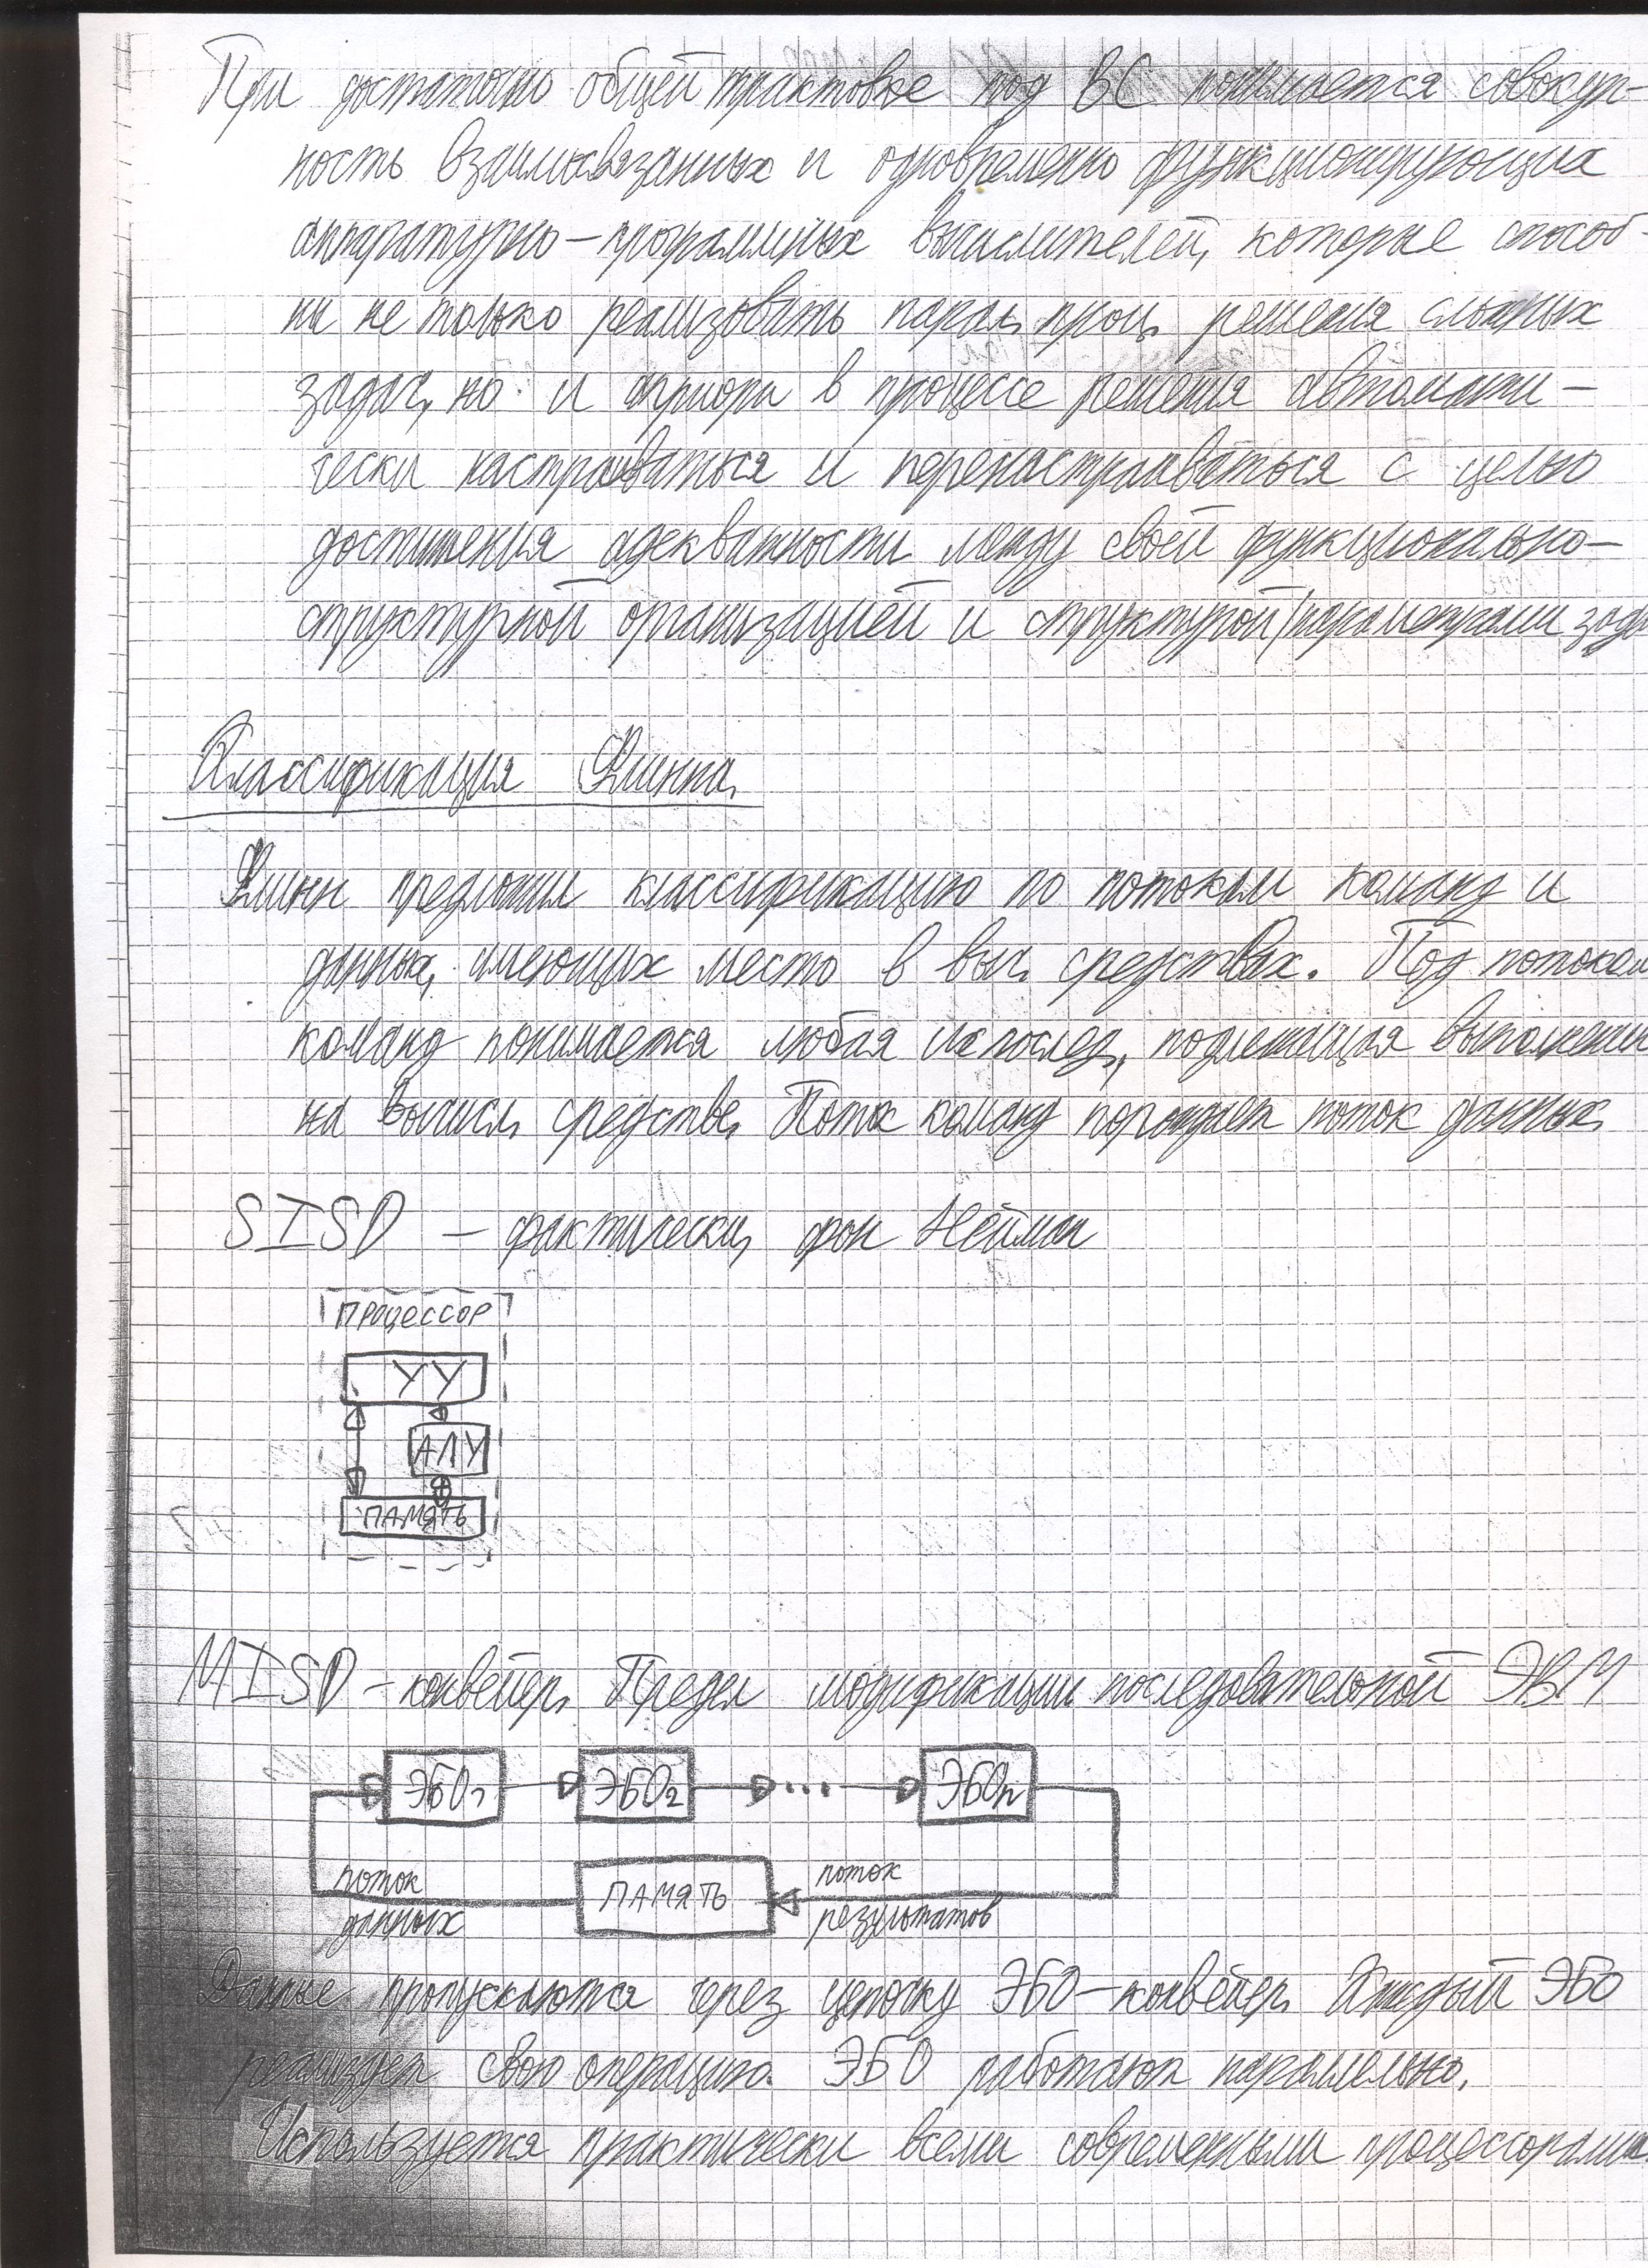 При достаточно общей трактовке под ВС понимается совокуп-
ность взаимосвязанных и одновременно функционирующих
аппаратурно-программных вычислителей, которые способ-
ны не только реализовать парал. проц. решения сложных
задач, но и априори в процессе решения автомати-
чески настраиваться и перенастраиваться с целью
достижения адекватности между своей функционально-
структурной организацией и структурой/параметрами зада
Классификация Флинна.
Флинн предложил классификацию по потокам команд и
данных, имеющих место в выч. средствах. Под потоком
команд понимается любая их послед., подлежащая выполнени
на вычисл. средстве. Поток команд порождает поток данных.
SISD - фактически, фон Нейман
ПРОЦЕССОР
УУ
АЛУ
ПАМЯТЬ
MISD - конвейер. Предел модификации последовательной ЭВМ
ЭБО1 ЭБО2 ... ЭБОn
поток данных
ПАМЯТЬ
поток результатов
Данные пропускаются через цепочку ЭБО-конвейер. Каждый ЭБО
реализует свою операцию. ЭБО работают параллельно.
Используется практически всеми современными процессорами.